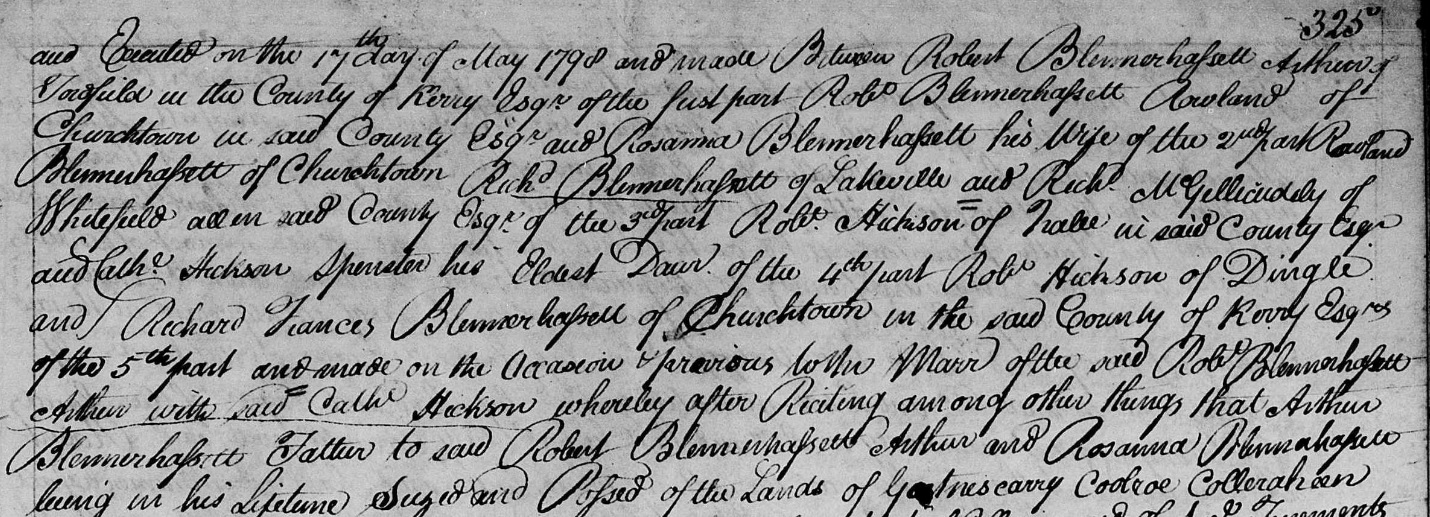 325
and Executed on the 17th day of May 1798 and made Between Robert Blennerhassett Arthur of
in the County of Kerry Esqr. of the first part Robt. Blennerhassett Rowland of
Churchtown in said County Esqr. and Rosanna Blennerhassett his Wife of the 2nd part Rowland
Blennerhassett of Churchtown Richd. Blennerhassett of Lakeville and Richd. McGellicuddy of
Whitefield all in said County Esqr. of the 3rd part Robt. Hickson of Tralee in said County Esqr
and Cathe. Hickson Spenster his Eldest Daur. of the 4th part Robt. Hickson of Dingle
and Richard Frances Blennerhassett of Churchtown in the said County of Kerry Esqrs
of the 5th part and made on the Occasion & previous to the Marr of the said Robt. Blennerhassett
Arthur with said Cathe. Hickson whereby after Reciting among other things that Arthur
Blennerhassett Father to said Robert Blennerhassett Arthur and Rosanna Blennerhassett
being in his Lifetime Seized and Possed of the Lands of Gortnescarry Coolroe Colleraheen
Tenements